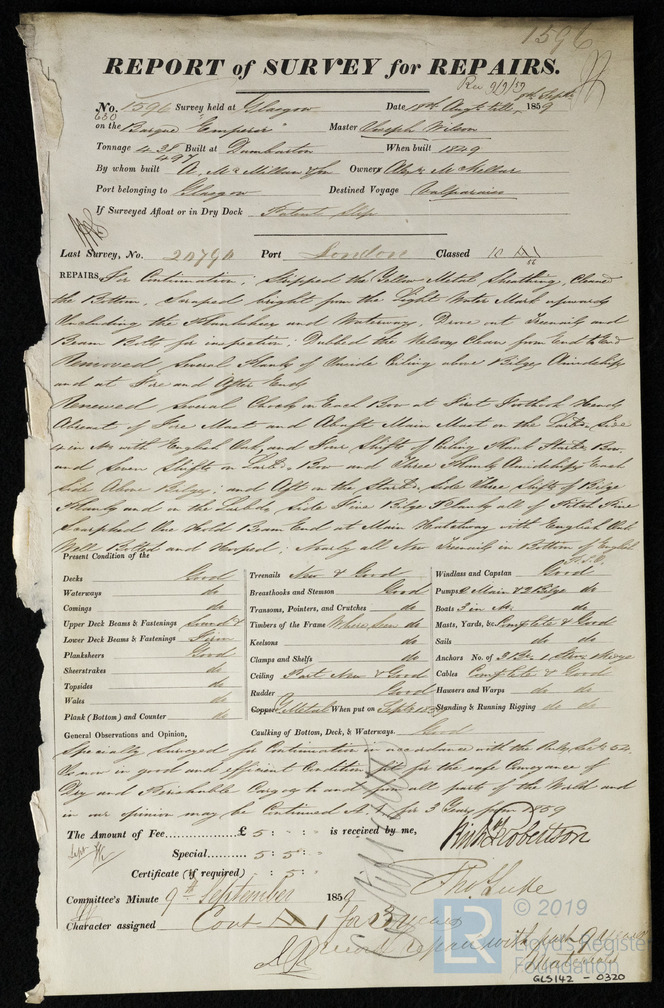 1596
REPORT of SURVEY for REPAIRS.
Rec 9/9/59
No. 1596 Survey held at Glasgow Date 18th Augt till 8th Septr 1859
on the Barque "Emperor" Master Joseph Wilson
Tonnage 438 497 Built at Dumbarton When built 1849
By whom built A. McMillan & Son Owners Alexr McKellar
Port belonging to Glasgow Destined Voyage Valparaiso
If Surveyed Afloat or in Dry Dock Patent Slip
Last Survey, No. 20790 Port London Classed 10 A1
REPAIRS, For Continuation; Stripped the Yellow Metal Sheathing, Cleaned
the Bottom, Scraped bright from the Light Water Mark upwards
Including the Planksheer and Waterways, Drove out Treenails and
Beam Bolts for inspection, Dubbed the Kelson Clean from End to End
Removed Several Planks of Inside Ceiling above Bilges Amidships
and at Fore and After Ends
Renewed Several Chocks on Each Bow at First Foothook Heads
Abreast of Fore Mast and Abaft Main Mast on the Larbd Side
4 in No with English Oak, and Four Shifts of Ceiling Plank Starbd Bow
and Seven Shifts on Larbd Bow and Three Planks Amidships Each
Side Above Bilges; and Aft on the Starbd Side Three Shifts of Bilge
Planks and on the Larbd Side Five Bilge Planks all of Pitch Pine
Scarphed One Hold Beam End at Main Hatchway with English Oak
Well Bolted and Hooped; Nearly all New Treenails in Bottom of English
Present Condition of the
Decks Good Treenails New & Good Windlass and Capstan Good
Waterways do Breasthooks and Stemson Good Pumps 2 Main & 2 Bilge do
Comings do Transoms, Pointers, and Crutches do Boats 3 in No. do
Upper Deck Beams & Fastenings Sound & Timbers of the Frame Where Seen do Masts, Yards, &c. Complete & Good
Lower Deck Beams & Fastenings Firm Keelsons do Sails do do
Planksheers Good Clamps and Shelfs do Anchors No. of 3 Br. 1 Strm
Sheerstrakes do Ceiling Part New & Good Cables Complete & Good
Topsides do Rudder Good Hawsers and Warps do do
Wales do Copper Y. Metal When put on Septr Standing & Running Rigging do do
Plank (Bottom) and Counter do Caulking of Bottom, Deck, & Waterways. Good
General Observations and Opinion,
Specially Surveyed for Continuation in accordance with the Rules Sect 54
Is now in good and efficient Condition, fit for the safe Conveyance of
Dry and Perishable Cargoes to and from all parts of the World and
in our opinion may be Continued A1 for 3 Years from 1859
The Amount of Fee £ 5 : : is received by me,
Special 5 : 5 :
Certificate (if required) : 5 :
Robertson
Thos Luke
Committee's Minute 9th September 1859
Character assigned Cont A 1 for 3 years
LR
© 2019
Lloyd's Register
Foundation
GLS142 - 0320